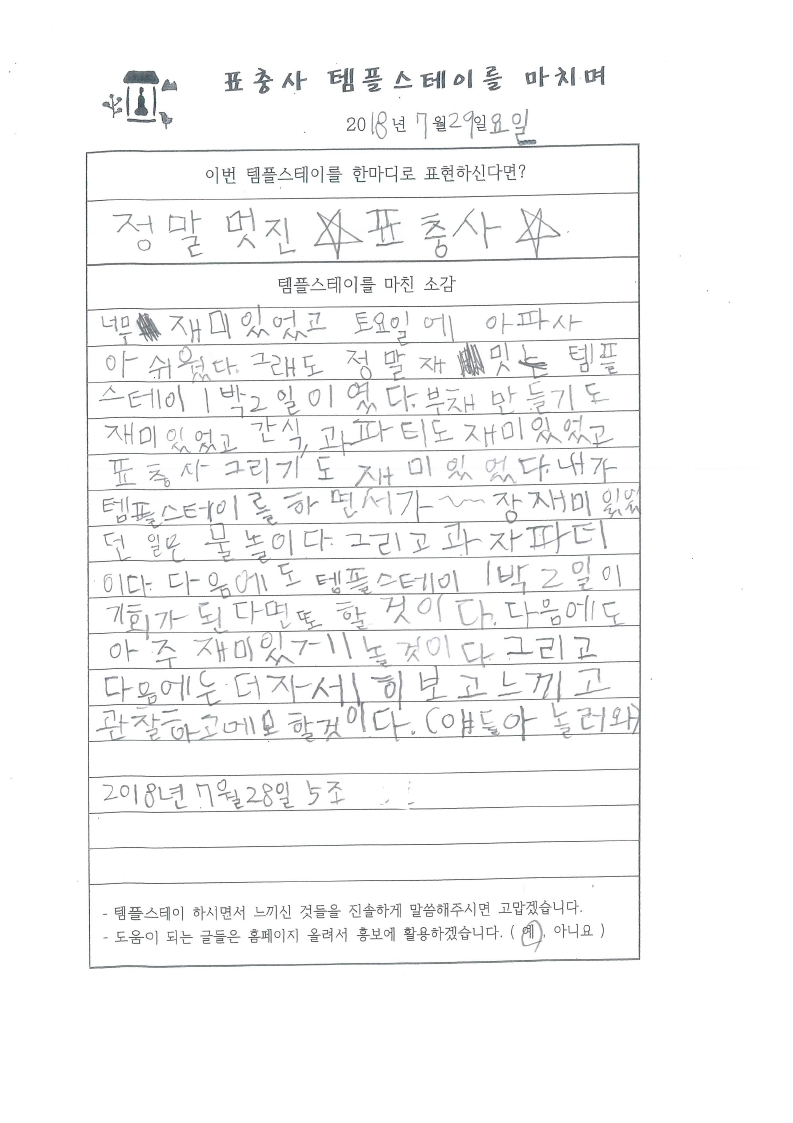 표충사 템플스테이를 마치며
2018년 7월29일요일
이번 템플스테이를 한마디로 표현하신다면?
정말 멋진 ☆표충사☆
템플스테이를 마친 소감
너무 재미있었고 토요일에 아파사
아쉬웠다. 그래도 정말 재밋는 템플
스테이 1박2일이였다. 부채 만들기도
재미있었고 간식, 과파티도 재미있었고
표충사 그리기도 재미있었다. 내가
템플스테이를 하면서 가~~장 재미있었
던 일은 물놀이다. 그리고 과자파티
이다. 다음에도 템플스테이 1박2일이
기회가 된다면 또 할 것이다. 다음에도
아주 재미있게 놀 것이다 그리고
다음에는 더 자세히 보고 느끼고
관찰하고 메모 할것이다. (얘들아 놀러와)
2018년 7월 28일 5조
- 템플스테이 하시면서 느끼신 것들을 진솔하게 말씀해주시면 고맙겠습니다.
- 도움이 되는 글들은 홈페이지 올려서 홍보에 활용하겠습니다. ( 예 , 아니요 )